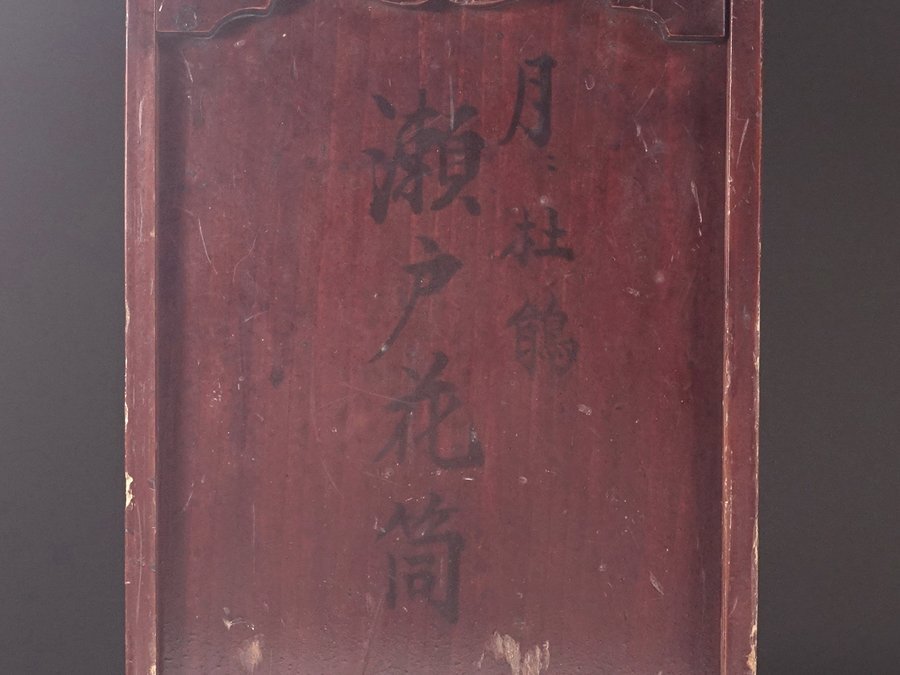 月ニ杜鵑
瀬戸花筒